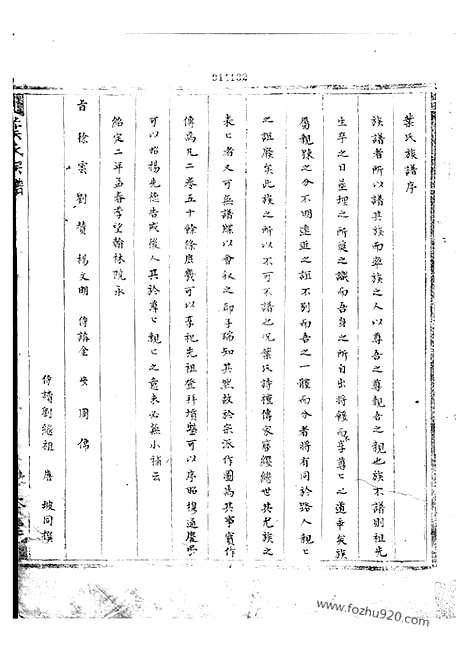 917182
葉氏族譜序
族譜者所以譜其族而率族之人以尊吾之尊親吾之親也族不譜則祖先
生卒之日塋埋之所莫之識而吾身之所自出將餒而孝尊尊之道乖矣族
屬親疎之分不明遠近之誼不別而吾之一體而分者將有同於路人親親
之誼廢矣此族之所以不可不譜也况葉氏詩禮傳家簪纓繼世其尤族之
表表者又可無譜牒以會叙之耶子瑞知其然故於宗派作圖為其事實作
傳為凡二卷五十餘條庶幾可以享祀先祖登拜墳塋可以序昭穆通慶弔
可以紹揚先德告戒後人其於尊尊親親之意未必無小補云
紹定二年孟春季望翰林院永
旨徐雲劉贊楊文明侍講金 周儒
侍講劉繼祖詹坡同撰
葉氏宗譜
www.fozhu920.com